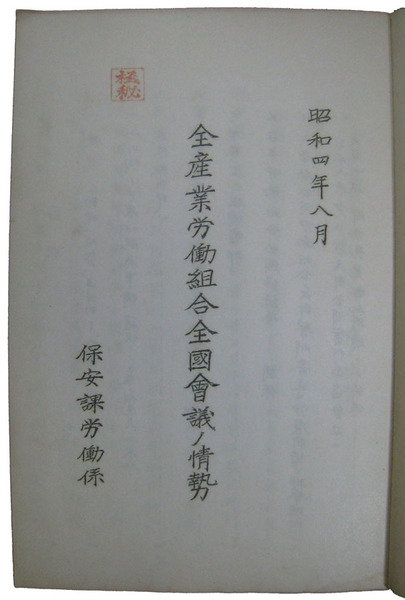 昭和四年八月
全産業労働組合全國會議ノ情勢
保安課労働係
極秘